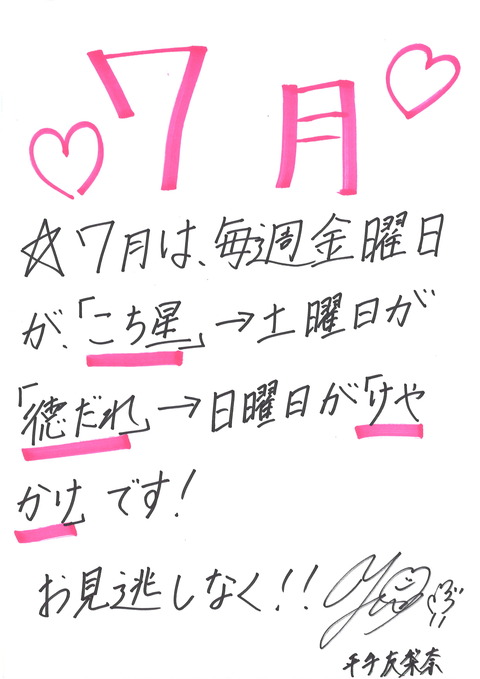 7月
☆7月は、毎週金曜日
が、「こち星」→土曜日が
「徳だれ」→日曜日が「けや
かけ」です!
お見逃しなく!!